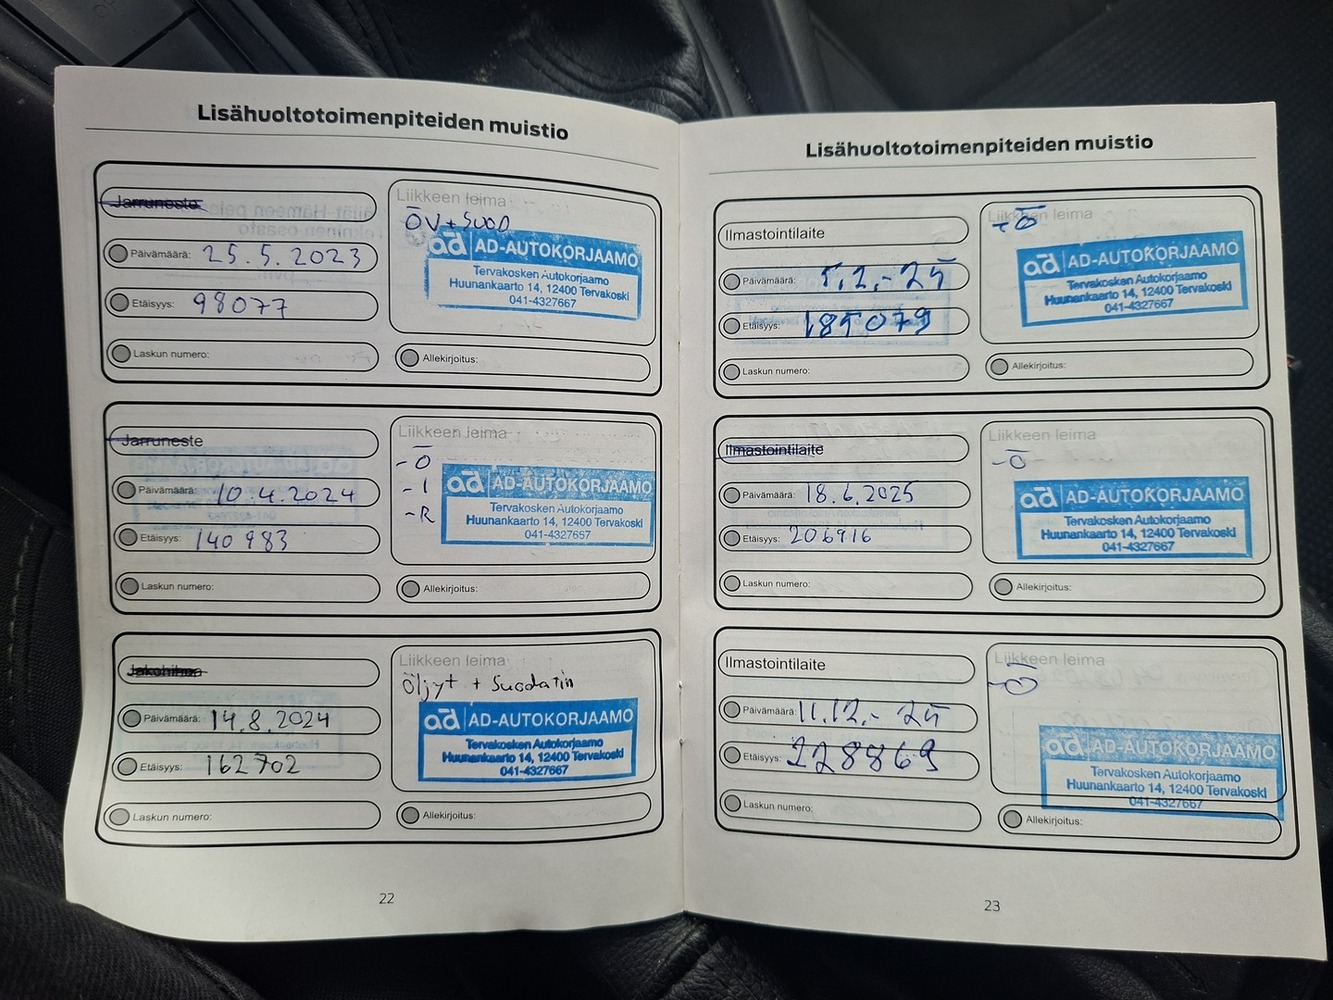 Lisähuoltotoimenpiteiden muistio
Jarruneste
Päivämäärä: 25.5.2023
Etäisyys: 98077
Laskun numero:
Liikkeen leima
ÖV+SUOD
ad AD-AUTOKORJAAMO
Tervakosken Autokorjaamo
Huunankaarto 14, 12400 Tervakoski
041-4327667
Allekirjoitus:
Jarruneste
Päivämäärä: 10.4.2024
Etäisyys: 140983
Laskun numero:
Liikkeen leima
-Ö
-I
-R
ad AD-AUTOKORJAAMO
Tervakosken Autokorjaamo
Huunankaarto 14, 12400 Tervakoski
041-4327667
Allekirjoitus:
Jakohihna
Päivämäärä: 14.8.2024
Etäisyys: 162702
Laskun numero:
Liikkeen leima
Öljyt + Suodatin
ad AD-AUTOKORJAAMO
Tervakosken Autokorjaamo
Huunankaarto 14, 12400 Tervakoski
041-4327667
Allekirjoitus:
22
Lisähuoltotoimenpiteiden muistio
Ilmastointilaite
Päivämäärä: 5.2.-25
Etäisyys: 185079
Laskun numero:
Liikkeen leima
-Ö
ad AD-AUTOKORJAAMO
Tervakosken Autokorjaamo
Huunankaarto 14, 12400 Tervakoski
041-4327667
Allekirjoitus:
Ilmastointilaite
Päivämäärä: 18.6.2025
Etäisyys: 206916
Laskun numero:
Liikkeen leima
-Ö
ad AD-AUTOKORJAAMO
Tervakosken Autokorjaamo
Huunankaarto 14, 12400 Tervakoski
041-4327667
Allekirjoitus:
Ilmastointilaite
Päivämäärä: 11.12.-25
Etäisyys: 228869
Laskun numero:
Liikkeen leima
-Ö
ad AD-AUTOKORJAAMO
Tervakosken Autokorjaamo
Huunankaarto 14, 12400 Tervakoski
041-4327667
Allekirjoitus:
23